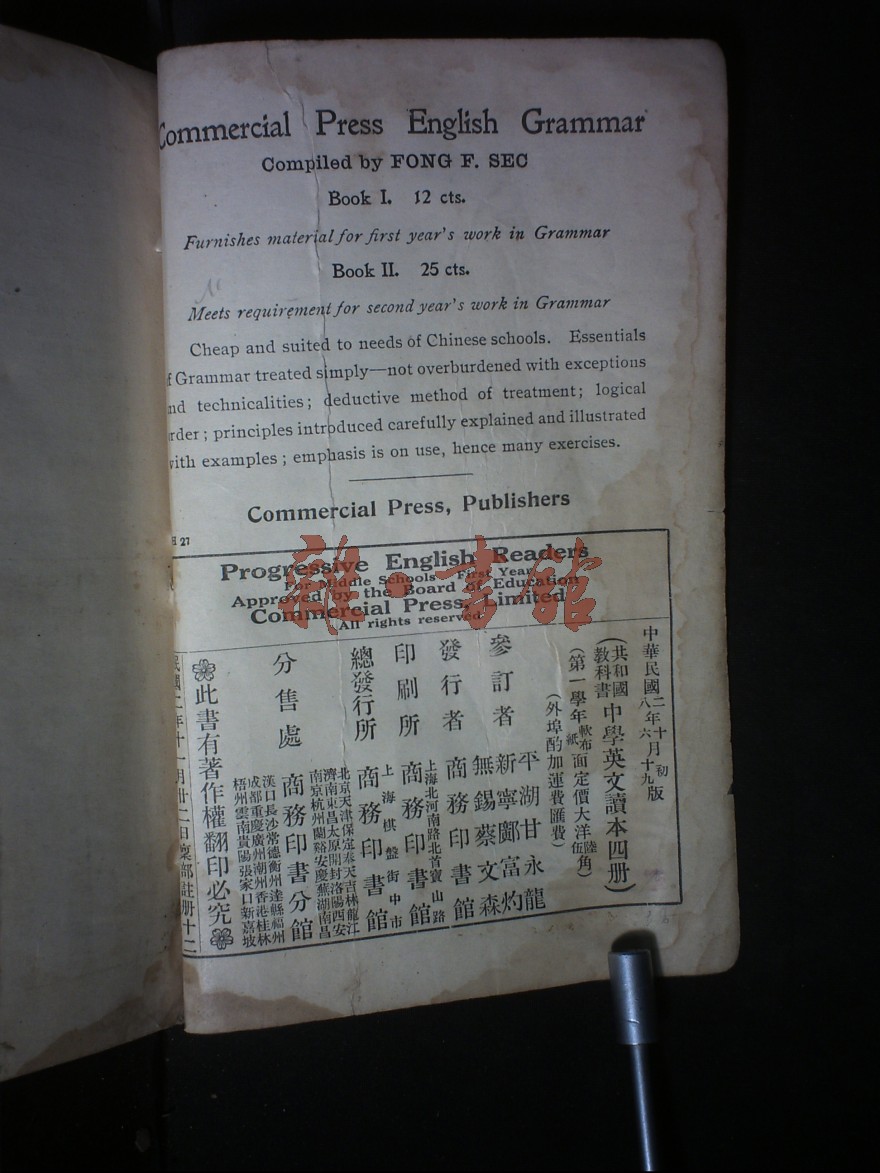 Commercial Press English Grammar
Compiled by FONG F. SEC
Book I. 12 cts.
Furnishes material for first year's work in Grammar
Book II. 25 cts.
Meets requirement for second year's work in Grammar
Cheap and suited to needs of Chinese schools. Essentials
f Grammar treated simply—not overburdened with exceptions
nd technicalities; deductive method of treatment; logical
rder; principles introduced carefully explained and illustrated
with examples; emphasis is on use, hence many exercises.
Commercial Press, Publishers
H 27
Progressive English Readers
For Middle Schools First Year
Approved by the Board of Education
Commercial Press, Limited
All rights reserved
雜·書館
中華民國二年十月初版
八年六月十九版
(共和國教科書中學英文讀本四册)
(第一學年軟布面紙面定價大洋陸角伍角)
(外埠酌加運費匯費)
參訂者
平湖甘永龍
新寧鄺富灼
無錫蔡文森
發行者
商務印書館
印刷所
上海北河南路北首寶山路
商務印書館
總發行所
上海棋盤街中市
商務印書館
分售處
北京天津保定奉天吉林龍江
濟南東昌太原開封洛陽西安
南京杭州蘭谿安慶蕪湖南昌
商務印書分館
漢口長沙常德衡州達縣福州
成都重慶廣州潮州香港桂林
梧州雲南貴陽張家口新嘉坡
此書有著作權翻印必究
民國二年十一月廿二日稟部註册十二